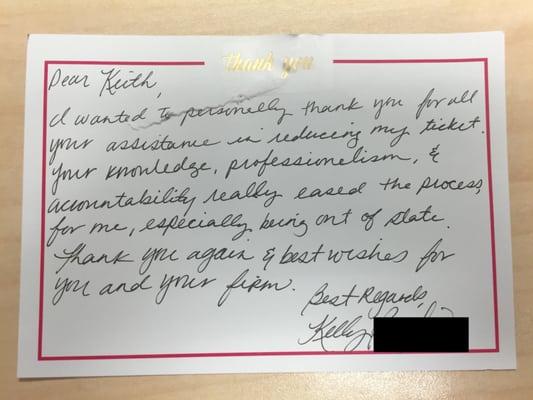 thank you
Dear Keith,
I wanted to personally thank you for all
your assistance in reducing my ticket.
Your knowledge, professionalism, &
accountability really eased the process
for me, especially being out of state.
Thank you again & best wishes for
you and your firm.
Best Regards,
Kelly